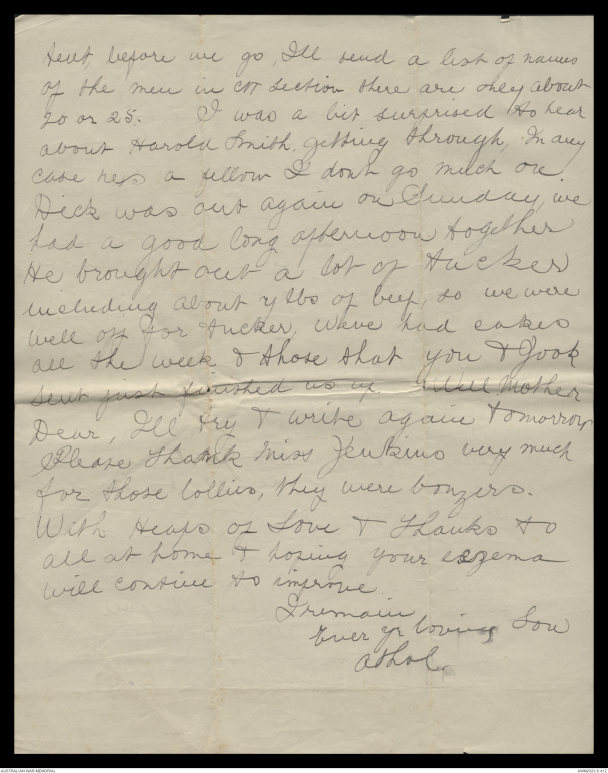 tent, before we go, I'll send a list of names
of the men in our section there are only about
20 or 25. I was a bit surprised to hear
about Harold Smith, getting through, In any
case he's a fellow I don't go much on.
Dick was out again on Sunday, we
had a good long afternoon together
He brought out a lot of tucker
including about 7 lbs of beef, so we were
well off for tucker, We've had cakes
all the week & those that you & Jook
sent just finished us up. Well Mother
Dear, I'll try & write again tomorrow
Please Thank Miss Jenkins very much
for those lollies, they were bonzers.
With Heaps of Love & Thanks to
all at home & hoping your eczema
will continue to improve
I remain
Ever yr loving Son
Athol.
AUSTRALIAN WAR MEMORIAL